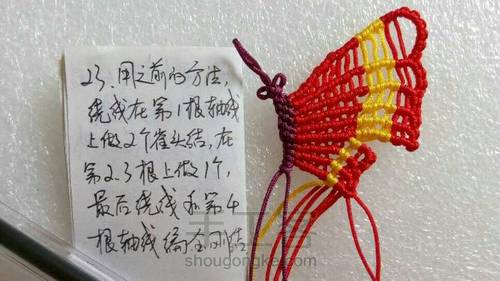 23、用之前的方法,
绕线在第1根轴线
上做2个雀头结,在
第2.3根上做1个,
最后绕线和第4
根轴线编金刚结
shougongke.com